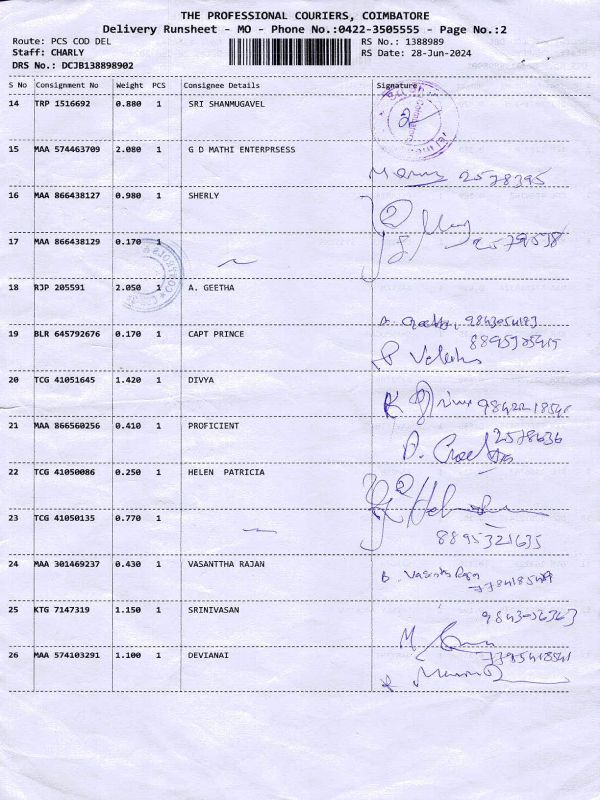 THE PROFESSIONAL COURIERS, COIMBATORE
Delivery Runsheet - MO - Phone No.:0422-3505555 - Page No.:2
Route: PCS COD DEL RS No.: 1388989
Staff: CHARLY RS Date: 28-Jun-2024
DRS No.: DCJB138898902
S No Consignment No Weight PCS Consignee Details Signature
14 TRP 1516692 0.880 1 SRI SHANMUGAVEL
15 MAA 574463709 2.080 1 G D MATHI ENTERPRSESS
2578395
16 MAA 866438127 0.980 1 SHERLY
2
2579538
17 MAA 866438129 0.170 1
18 RJP 205591 2.050 1 A. GEETHA
19 BLR 645792676 0.170 1 CAPT PRINCE
20 TCG 41051645 1.420 1 DIVYA
21 MAA 866560256 0.410 1 PROFICIENT
2578636
22 TCG 41050086 0.250 1 HELEN PATRICIA
23 TCG 41050135 0.770 1
8895321635
24 MAA 301469237 0.430 1 VASANTTHA RAJAN
25 KTG 7147319 1.150 1 SRINIVASAN
26 MAA 574103291 1.100 1 DEVIANAI